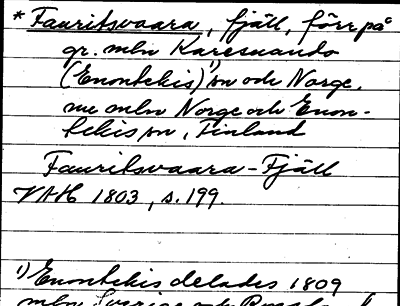 * Fauritsvaara, fjäll, förr på
gr. mln Karesuando
(Enontekis)¹⁾ sn och Norge,
nu mln Norge och Enon-
tekis sn, Finland
Fauritsvaara-Fjäll
VAH 1803, s. 199.
¹⁾ Enontekis delades 1809
mln Sverige och